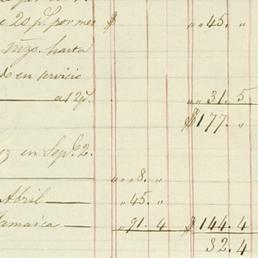 e 20 p.r por mes $ „ 45. „
Mzo. hasta
de en servicio
a 127. „ „ 31. 5
$ 177. „
oz en Sep.e 2.
„ „ 8. „
Abril — „ 45. „
Jamaica — „ 91. 4 $ 144. 4
32. 4